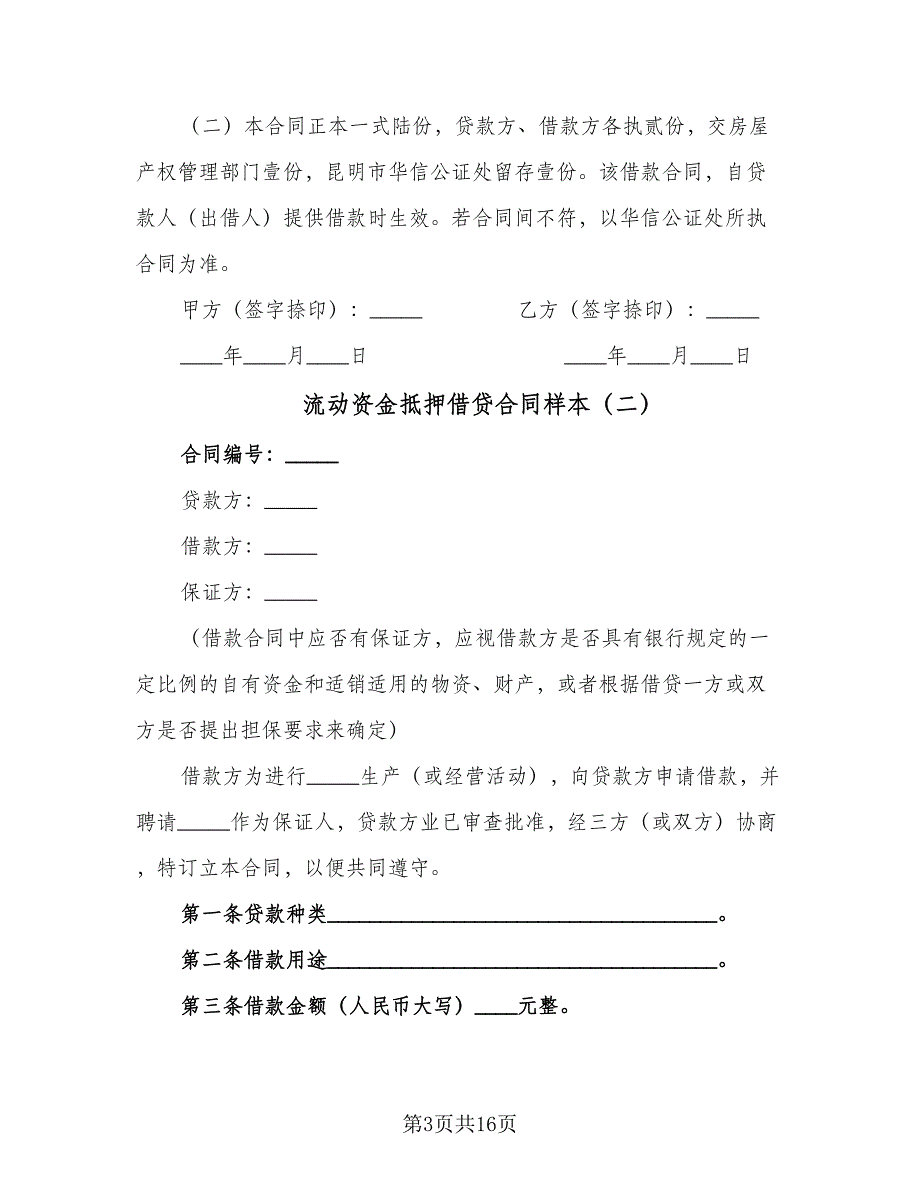 （二）本合同正本一式陆份，贷款方、借款方各执贰份，交房屋
产权管理部门壹份，昆明市华信公证处留存壹份。该借款合同，自贷
款人（出借人）提供借款时生效。若合同间不符，以华信公证处所执
合同为准。
甲方（签字捺印）：_____ 乙方（签字捺印）：_____
____年____月____日 ____年____月____日
流动资金抵押借贷合同样本（二）
合同编号：_____
贷款方：_____
借款方：_____
保证方：_____
（借款合同中应否有保证方，应视借款方是否具有银行规定的一
定比例的自有资金和适销适用的物资、财产，或者根据借贷一方或双
方是否提出担保要求来确定）
借款方为进行_____生产（或经营活动），向贷款方申请借款，并
聘请_____作为保证人，贷款方业已审查批准，经三方（或双方）协商
，特订立本合同，以便共同遵守。
第一条贷款种类_____________________________________。
第二条借款用途_____________________________________。
第三条借款金额（人民币大写）____元整。
第3页共16页